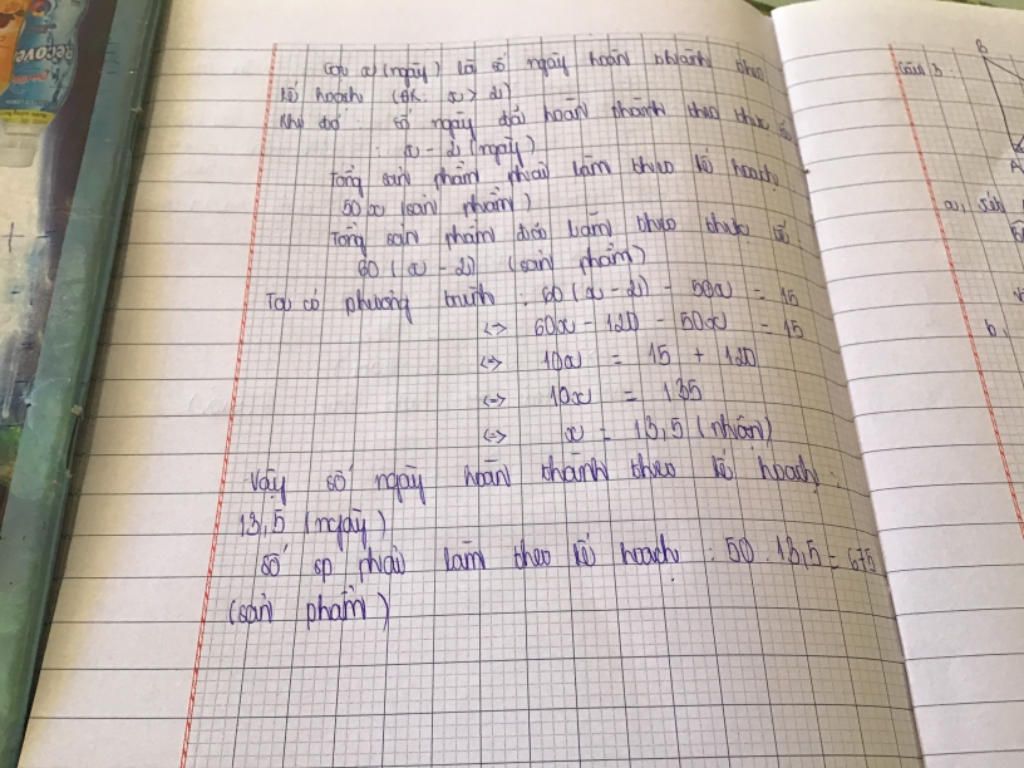 Recove
Gọi x (ngày) là số ngày hoàn thành theo
kế hoạch (ĐK: x > 2)
Khi đó: số ngày đã hoàn thành theo thực tế
: x - 2 (ngày)
Tổng sản phẩm phải làm theo kế hoạch
50x (sản phẩm)
Tổng sản phẩm đã làm theo thực tế
60 (x - 2) (sản phẩm)
Ta có phương trình : 60 (x - 2) - 50x = 15
<=> 60x - 120 - 50x = 15
<=> 10x = 15 + 120
<=> 10x = 135
<=> x = 13,5 (nhận)
Vậy số ngày hoàn thành theo kế hoạch :
13,5 (ngày)
Số sp phải làm theo kế hoạch : 50 . 13,5 = 675
(sản phẩm)
Câu 3:
B
A
a,
b,